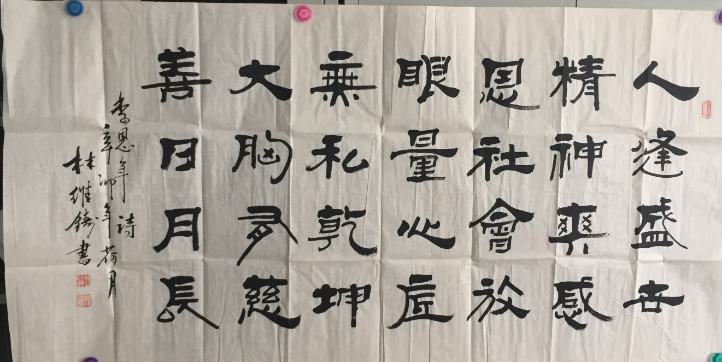 人逢盛世
精神爽感
恩社會放
眼量心底
無私乾坤
大胸有慈
善日月長
李恩年詩
辛卯年荷月
林維書